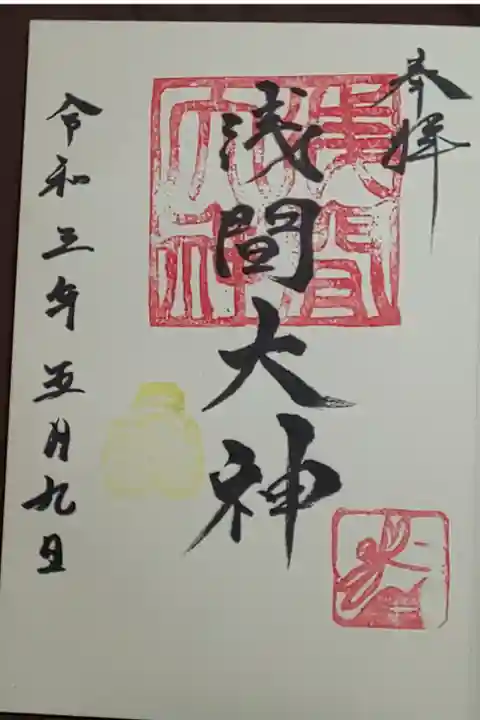 奉拝
浅間大神
令和三年五月九日